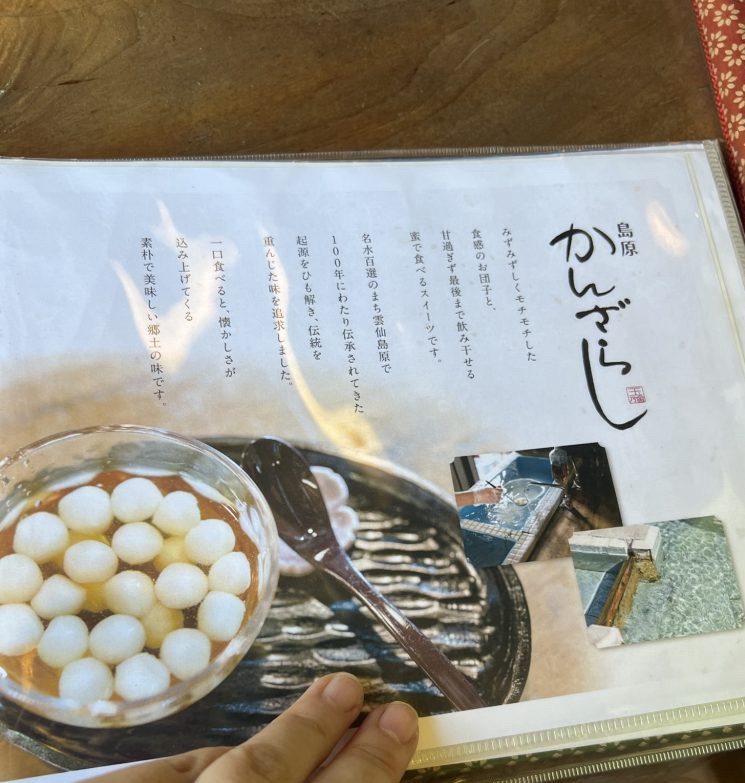 島原
かんざらし
みずみずしくモチモチした
食感のお団子と、
甘過ぎず最後まで飲み干せる
蜜で食べるスイーツです。
名水百選のまち雲仙島原で
100年にわたり伝承されてきた
起源をひも解き、伝統を
重んじた味を追求しました。
一口食べると、懐かしさが
込み上げてくる
素朴で美味しい郷土の味です。